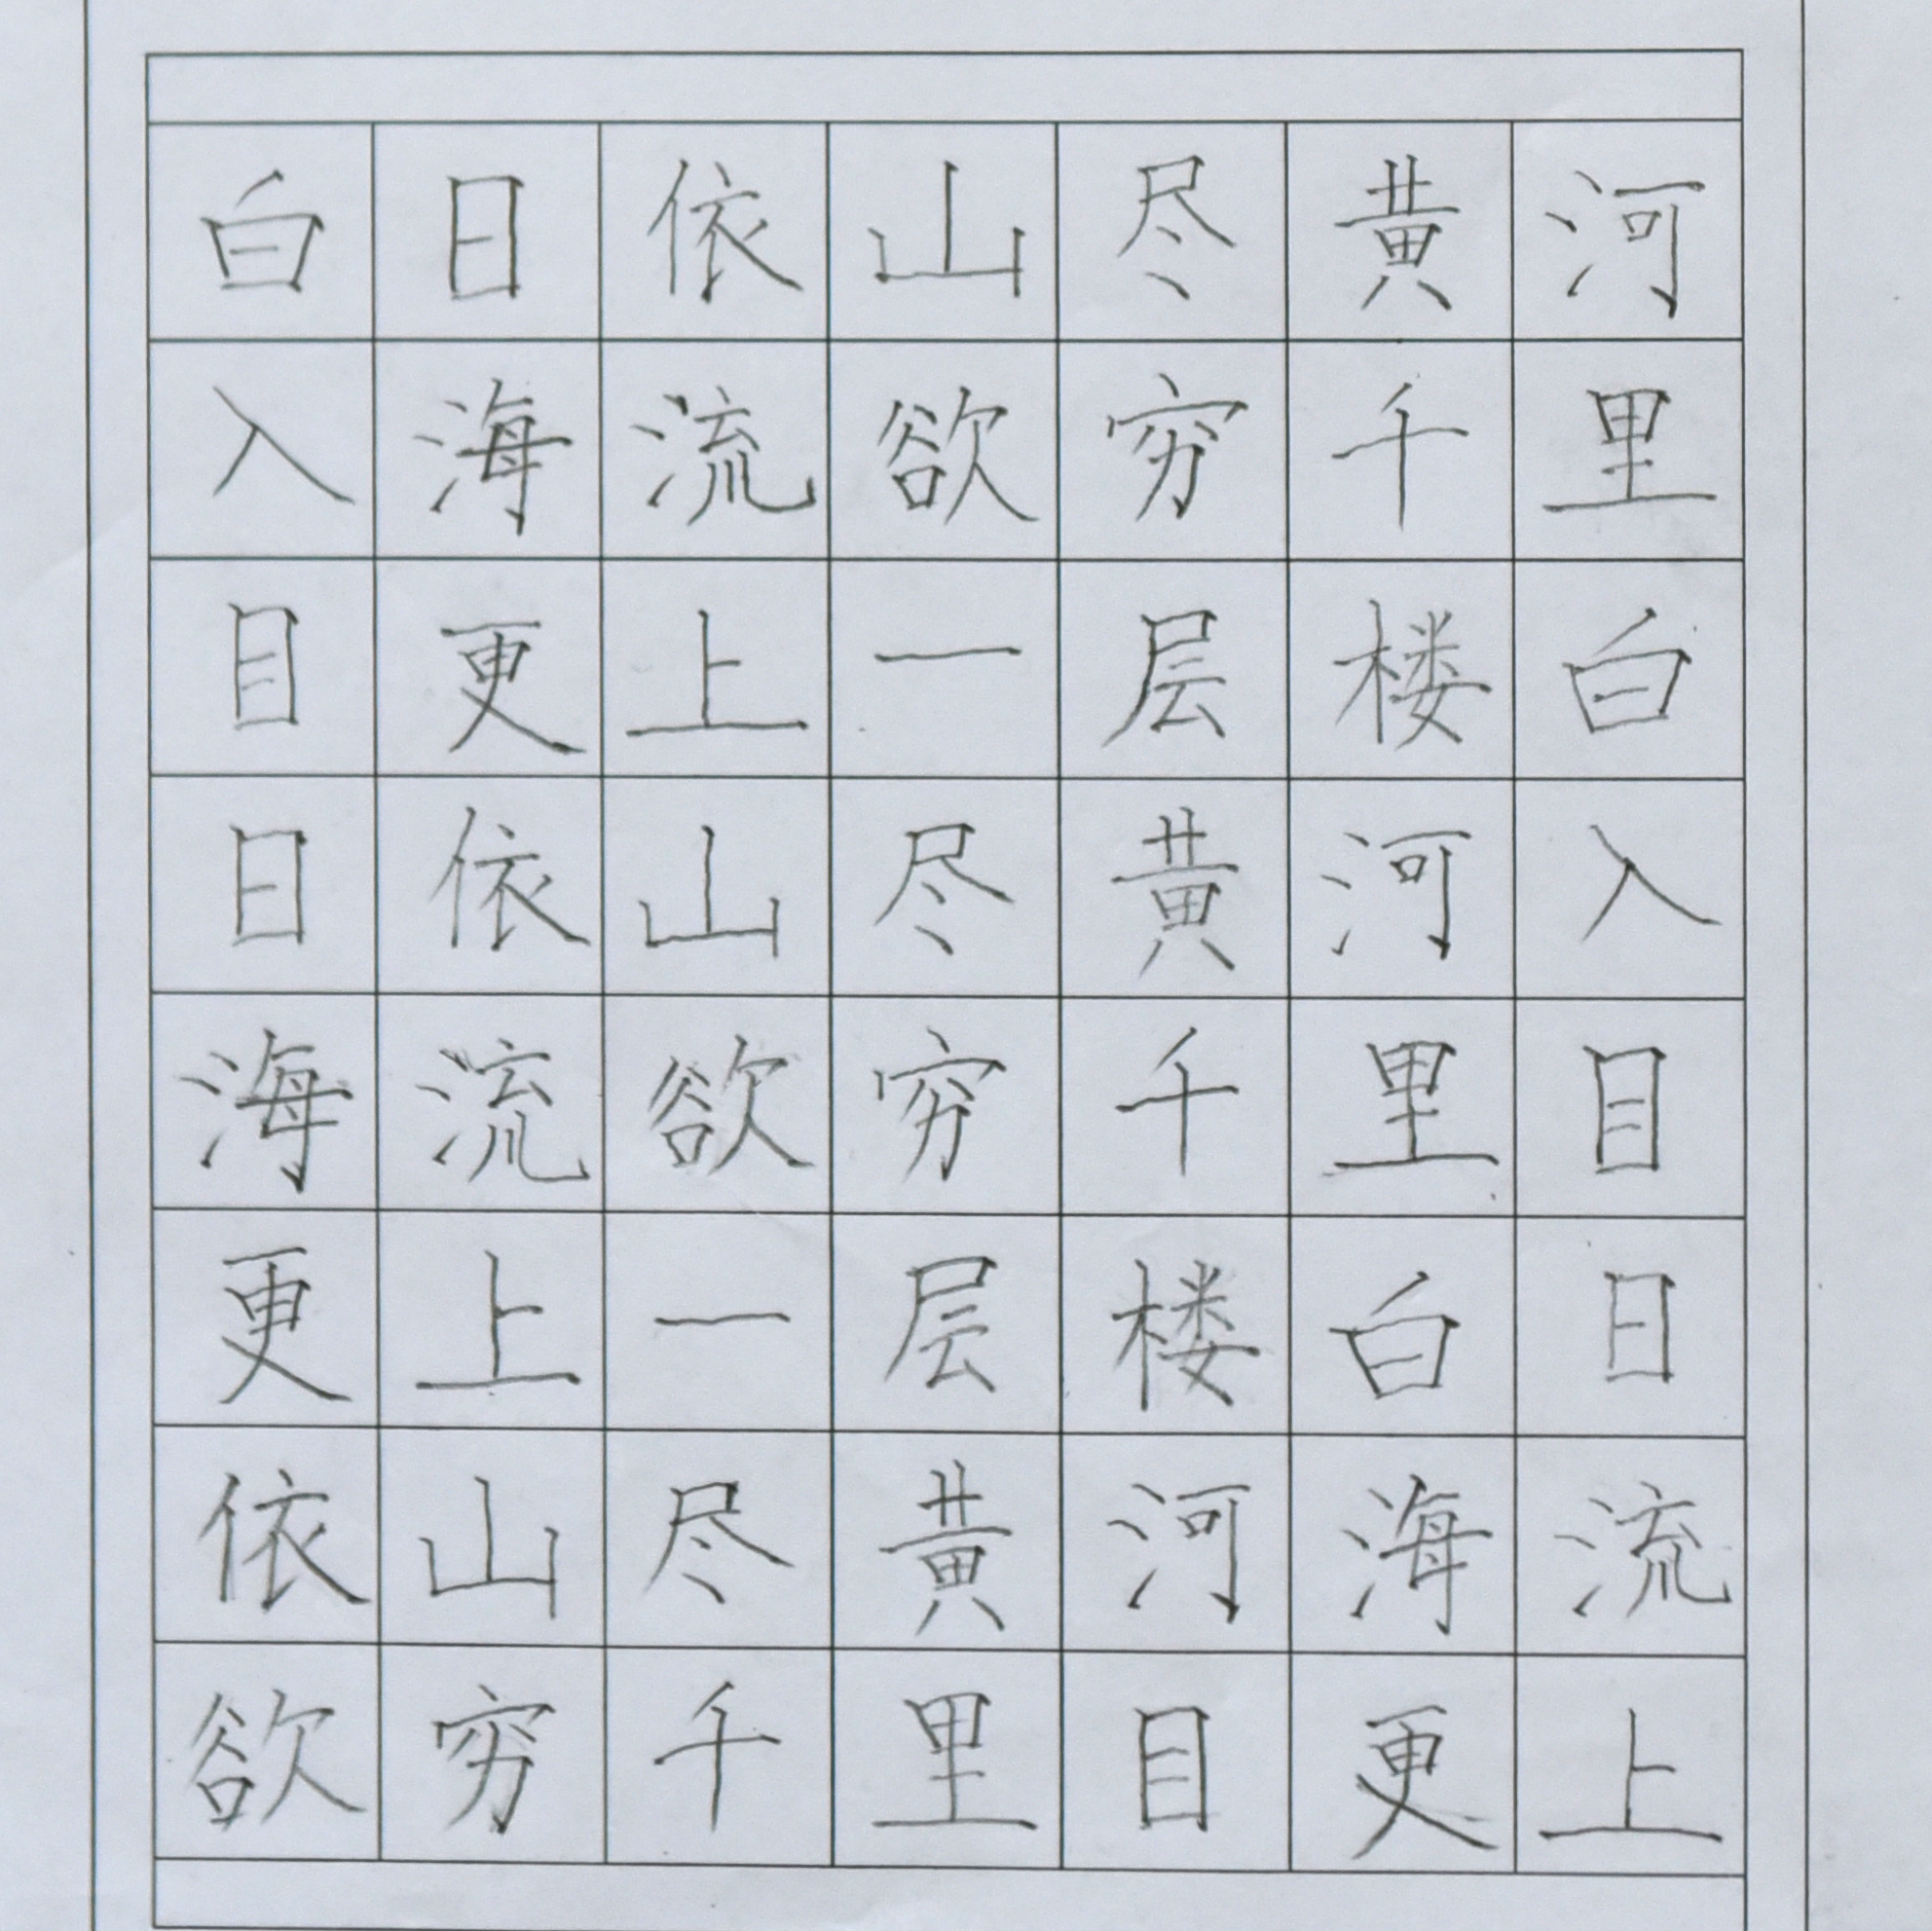 白日依山尽黄河
入海流欲穷千里
目更上一层楼白
日依山尽黄河入
海流欲穷千里目
更上一层楼白日
依山尽黄河海流
欲穷千里目更上